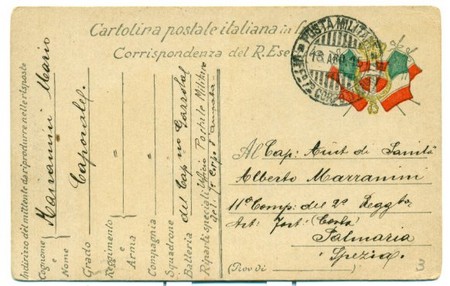 Cartolina postale italiana in
Corrispondenza del R. Ese
POSTA MILITARE
18 AGO. 15
Indirizzo del mittente da riprodurre nelle risposte
Cognome Marramini Mario
e
Nome
Grado Caporale
Reggimento
e
Arma
Compagnia
Squadrone
Batteria del Cap no
Riparti speciali Ufficio Postale Militare
del 7° Corpo d'Armata
Al Cap: Aiut di Sanità
Alberto Marramini
11ª Comp. del 2° Reggto
Art. Fort. (Costa)
Palmaria
Spezia
(Prov. di